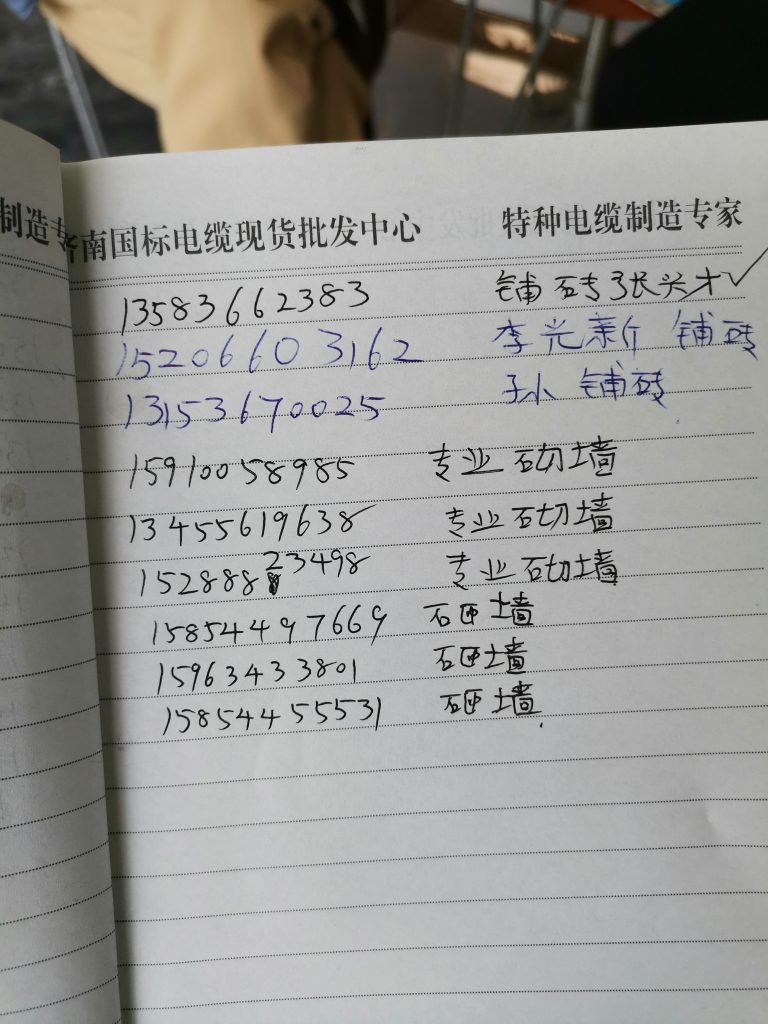 制造专
济南国标电缆现货批发中心 特种电缆制造专家
13583662383 铺砖张兴才✓
15206603162 李光新 铺砖
13153670025 孙 铺砖
15910058985 专业砌墙
13455619638 专业砌墙
15288823498 专业砌墙
15854497669 砸墙
15963433801 砸墙
15854455531 砸墙.